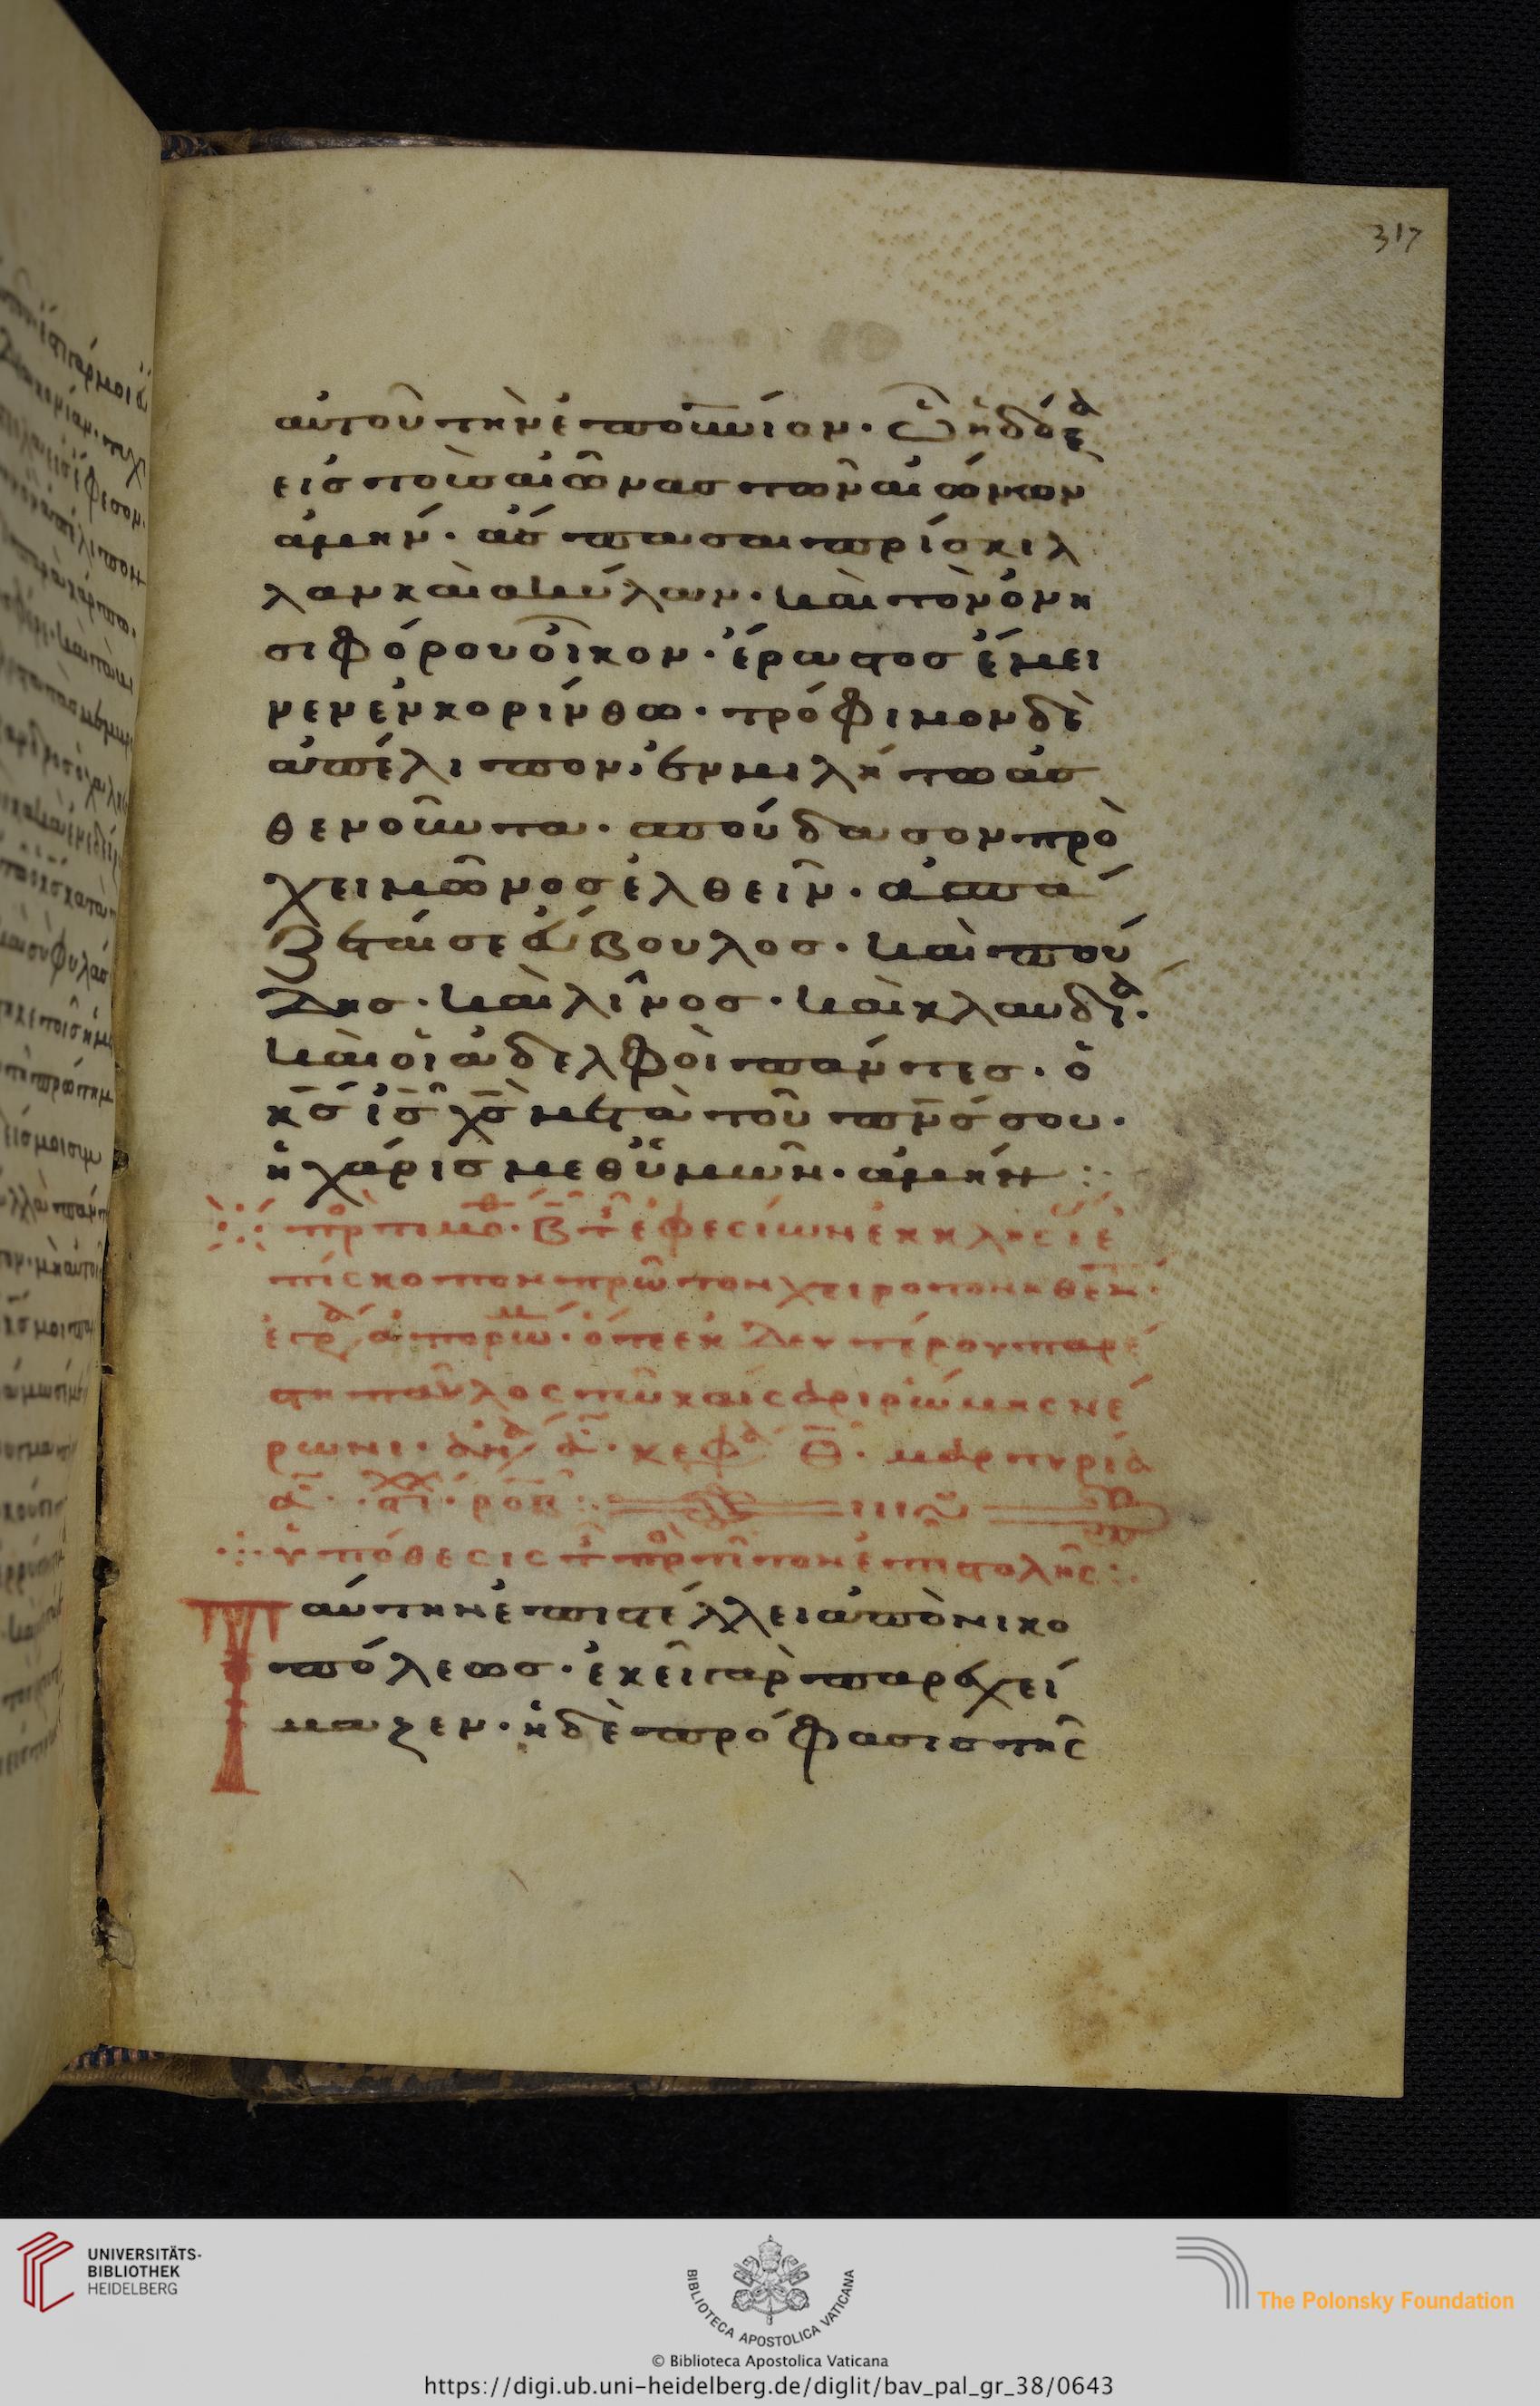 317
αὐτοῦ τὴν ἐπουράνιον· ᾧ ἡ δόξα
εἰς τοὺς αἰῶνας τῶν αἰώνων
ἀμήν· ἄσπασαι πρίσκιλ
λαν καὶ ἀκύλαν· καὶ τὸν ὀνη
σιφόρου οἶκον· ἔραστος ἔμει
νεν ἐν κορίνθω· τρόφιμον δὲ
ἀπέλιπον· ἐν μιλήτω ἀσ
θενοῦντα· σπούδασον πρὸ
χειμῶνος ἐλθεῖν· ἀσπά
ζεταί σε εὔβουλος· καὶ πού
δης· καὶ λῖνος· καὶ κλαυδία·
καὶ οἱ ἀδελφοὶ πάντες· ὁ
κς ις χς μετὰ τοῦ πνς σου·
ἡ χάρις μεθ ὑμῶν· ἀμήν :·
πρ τιμο· β τ ἐφεσίων ἐκκλησι ἐ
πίσκοπον πρῶτον χειροτονηθεν·
ἐγρ ἀπο ρωμ· ὅτε ἐκ δευτέρου παρέ
στη παῦλος τῶ καίσαρι ρώμης νέ
ρωνι· κεφ θ· μαρτυρία
α· στι· ροβ :·
ὑπόθεσις τ πρ τίτον ἐπιστολῆς :·
Ταύτην ἐπιστέλλει ἀπὸ νικο
πόλεως· ἐκεῖ γὰρ παρεχεί
μαζεν· ἡ δὲ πρόφασις τῆς
UNIVERSITÄTS-
BIBLIOTHEK
HEIDELBERG
BIBLIOTECA APOSTOLICA VATICANA
The Polonsky Foundation
© Biblioteca Apostolica Vaticana
https://digi.ub.uni-heidelberg.de/diglit/bav_pal_gr_38/0643